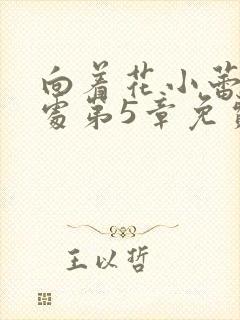 向着花小蕾
处第5章免
王以哲